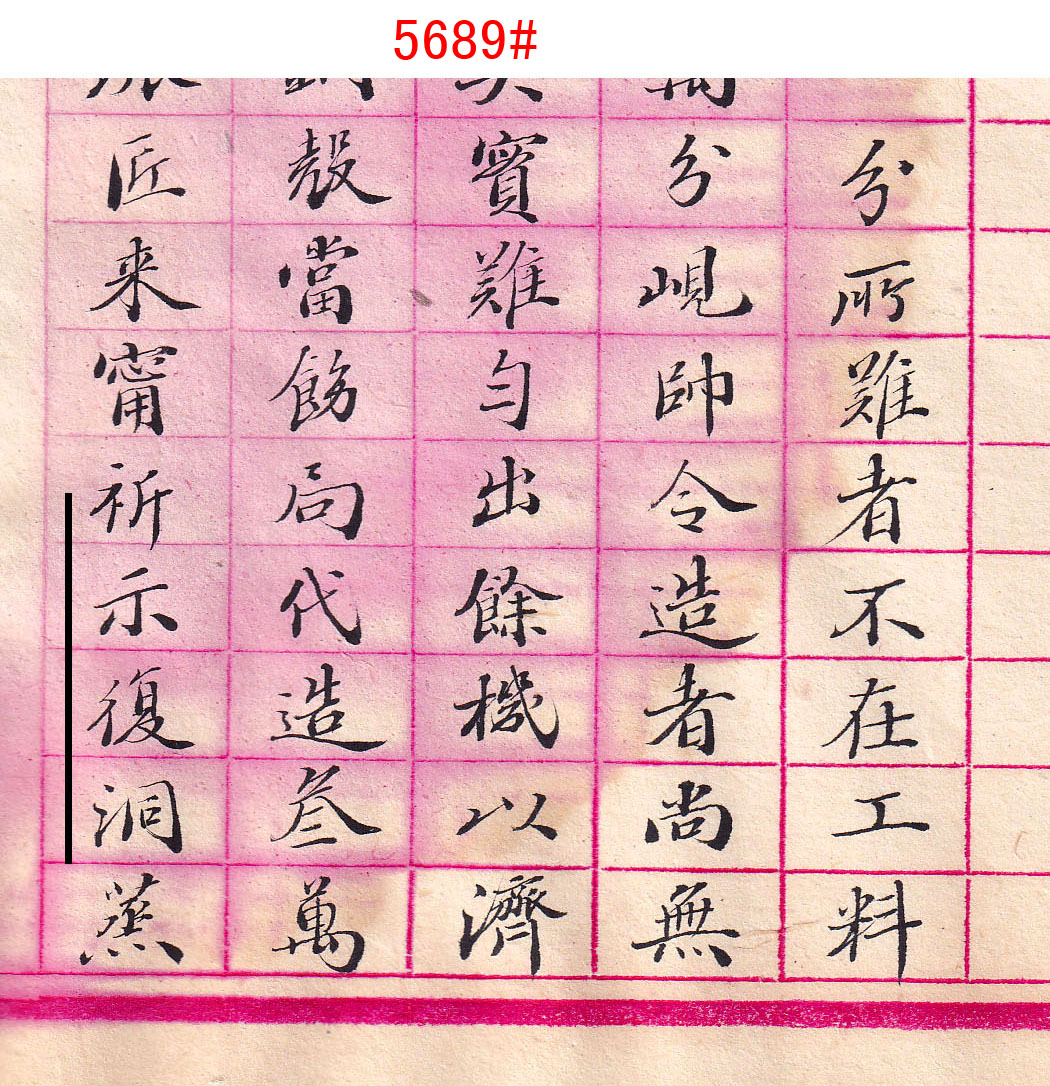 5689#
分所難者不在工料
萬分峴帥令造者尚無
實難勻出餘機以濟
殼當飭局代造叁萬
匠来甯祈示復洞蒸